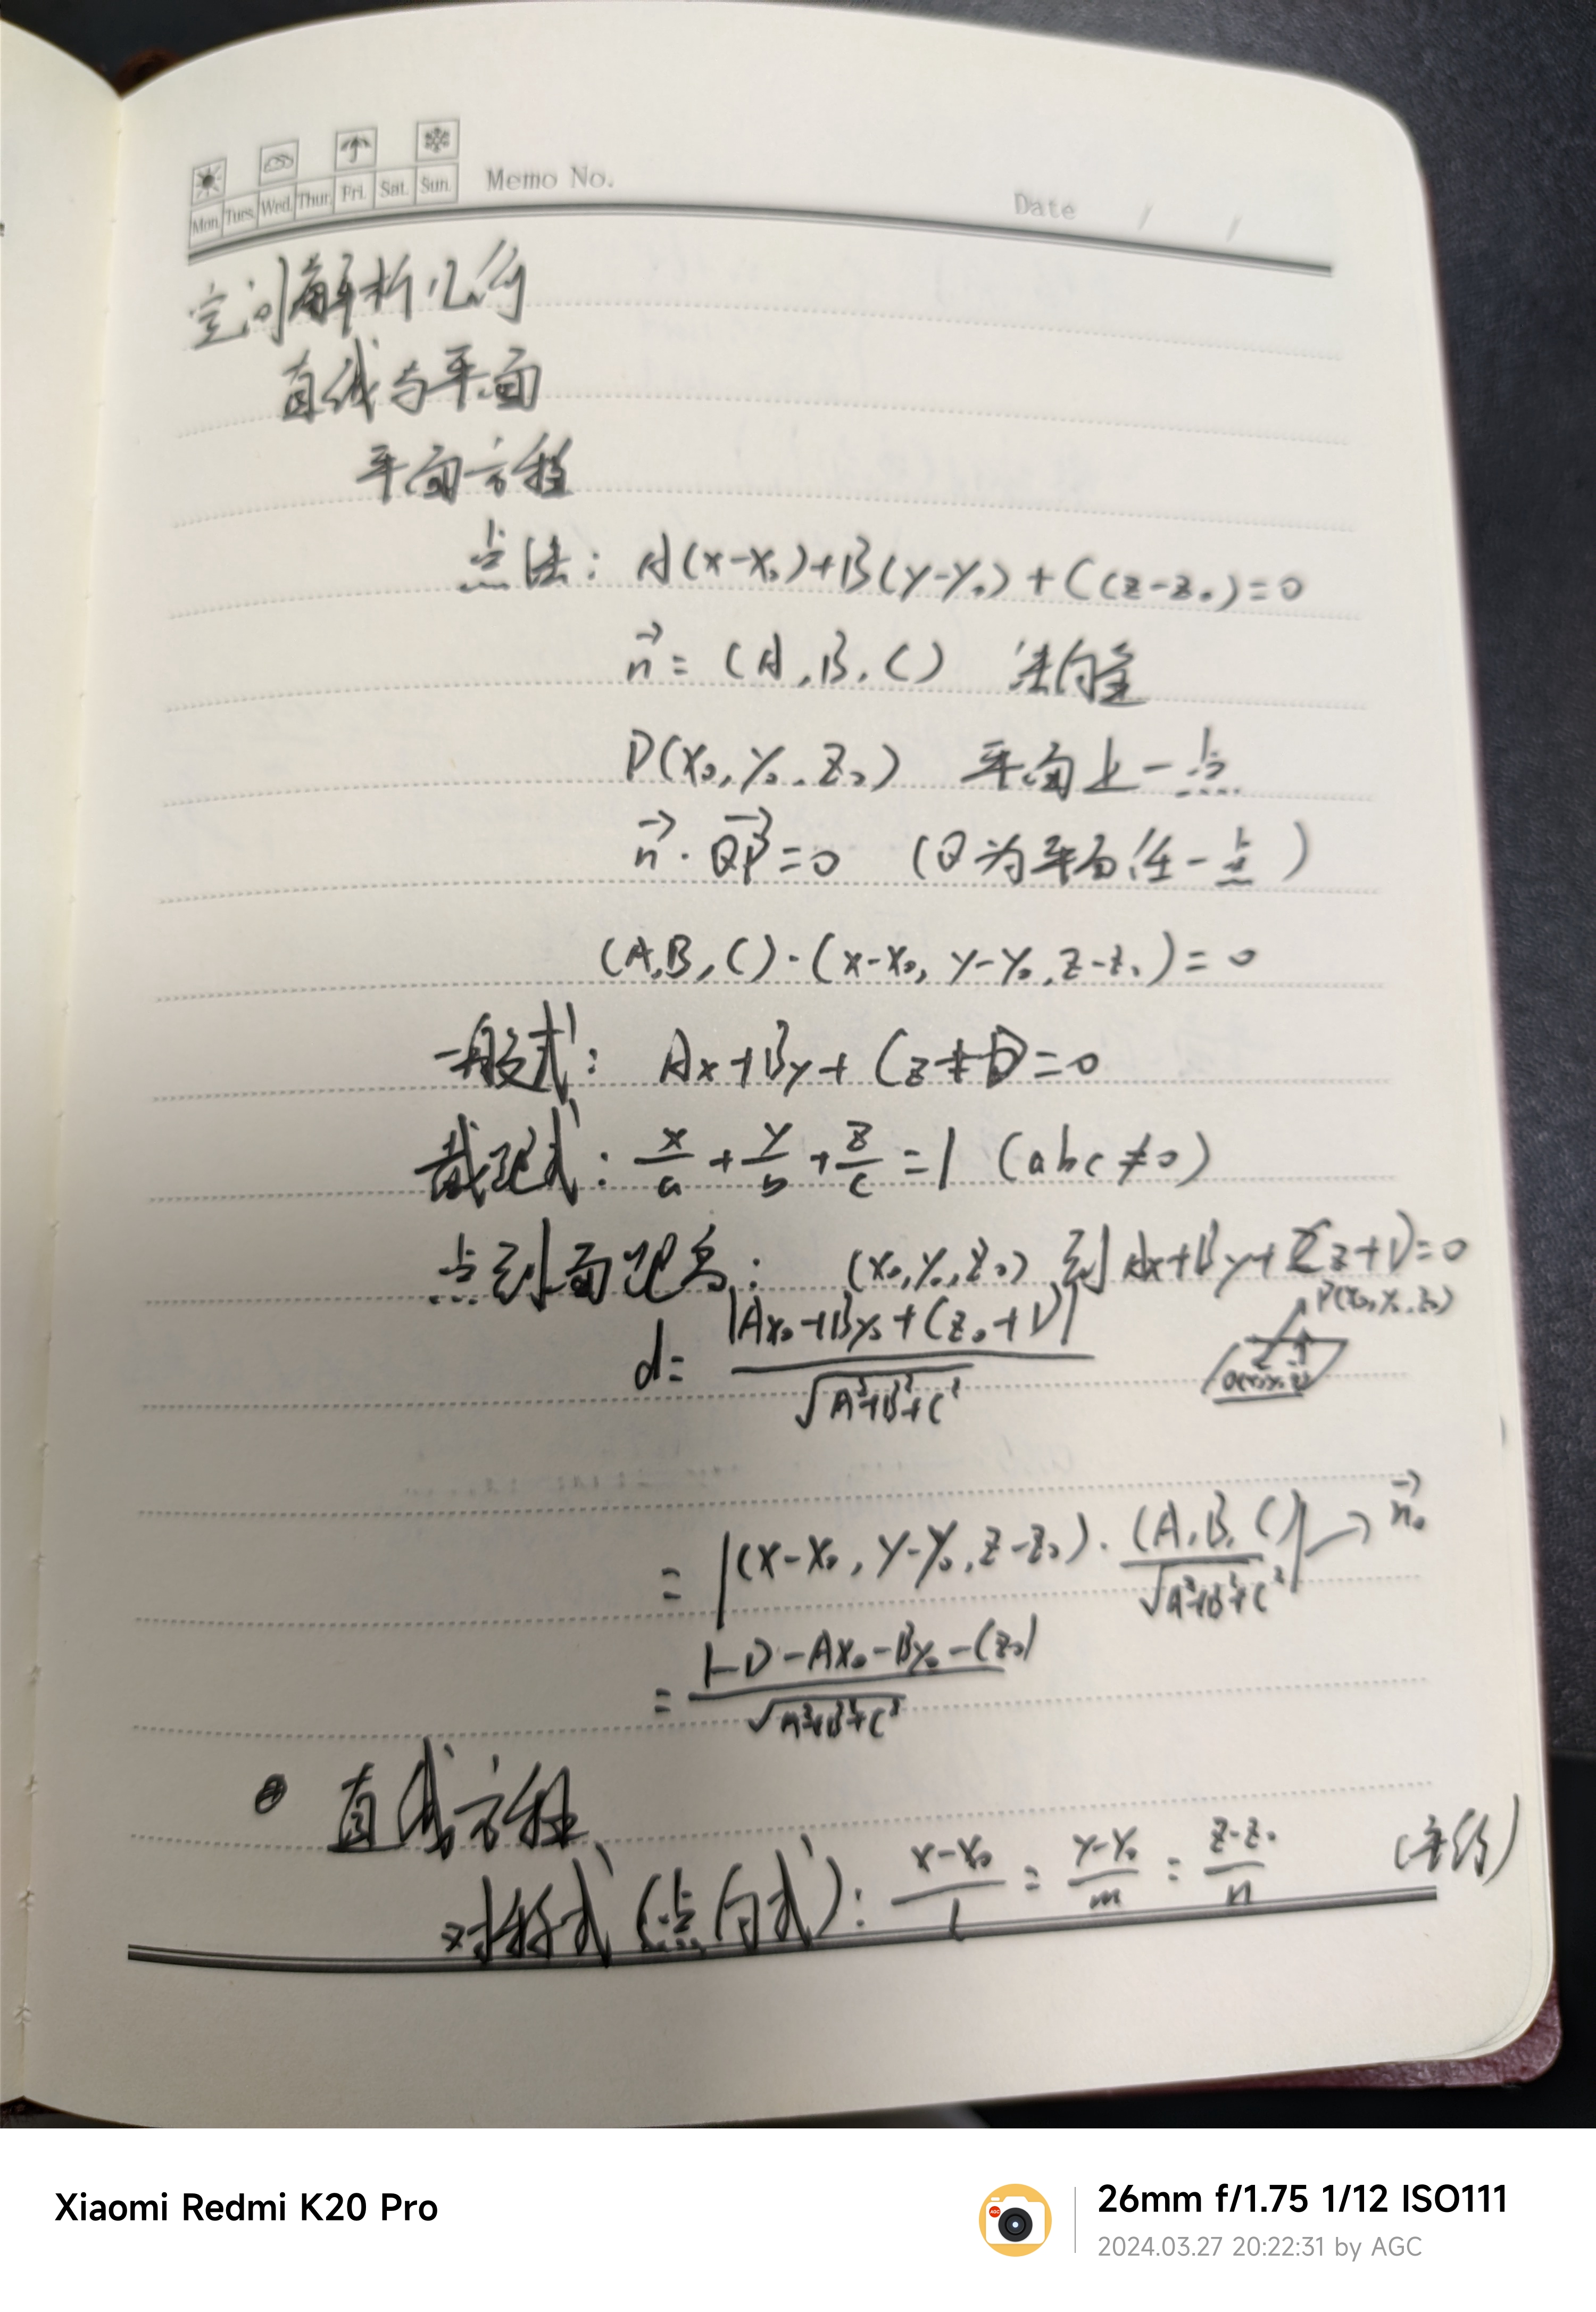 Mon. Tues. Wed. Thur. Fri. Sat. Sun. Memo No.
Date / /
空间解析几何
直线与平面
平面方程
点法: A(x-x₀)+B(y-y₀)+C(z-z₀)=0
n⃗=(A,B,C) 法向量
P(x₀,y₀,z₀) 平面上一点
n⃗·QP⃗=0 (Q为平面任一点)
(A,B,C)·(x-x₀, y-y₀, z-z₀)=0
一般式: Ax+By+Cz+D=0
截距式: x/a+y/b+z/c=1 (abc≠0)
点到面距离: (x₀,y₀,z₀) 到 Ax+By+Cz+D=0
P(x₀,y₀,z₀)
d=|Ax₀+By₀+Cz₀+D|/√(A²+B²+C²)
=|(x-x₀, y-y₀, z-z₀)·(A,B,C)/√(A²+B²+C²)|→n⃗₀
=|-D-Ax₀-By₀-Cz₀|/√(A²+B²+C²)
直线方程
对称式(点向式): (x-x₀)/l=(y-y₀)/m=(z-z₀)/n
Xiaomi Redmi K20 Pro
26mm f/1.75 1/12 ISO111
2024.03.27 20:22:31 by AGC